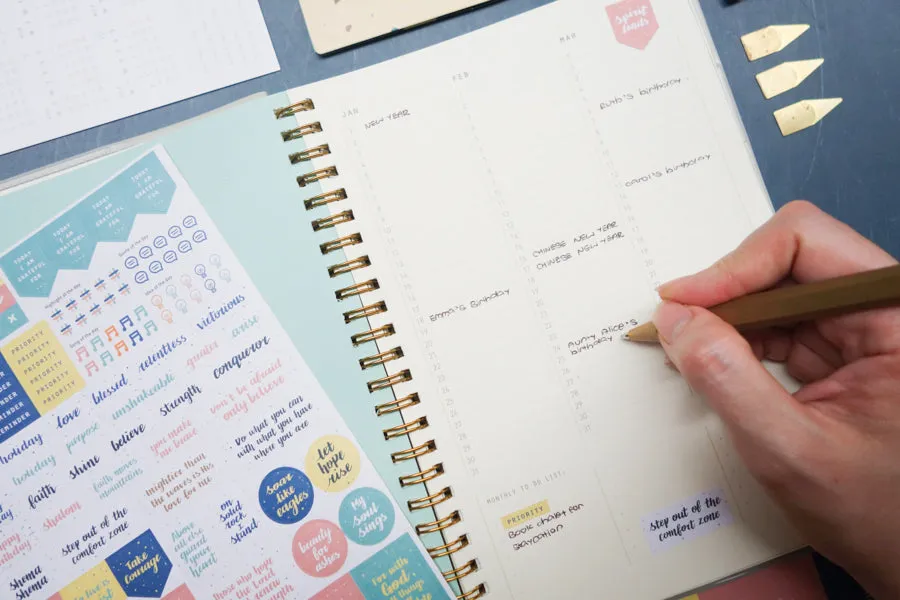 JAN
FEB
MAR
NEW YEAR
CHINESE NEW YEAR
CHINESE NEW YEAR
Emma's Birthday
Aunty Alice's
birthday
Ruth's birthday
Carol's birthday
MONTHLY TO DO LIST:
PRIORITY
Book chalet for
staycation
step out of the
comfort zone
TODAY
I AM
GRATEFUL
FOR
TODAY
I AM
GRATEFUL
FOR
TODAY
I AM
GRATEFUL
FOR
TODAY
I AM
GRATEFUL
FOR
PRIORITY
PRIORITY
PRIORITY
PRIORITY
PRIORITY
holiday
love
blessed
relentless
victorious
holiday
purpose
unshakeable
arise
faith
shine
believe
strength
conqueror
shalom
faith moves
mountains
you make
me brave
don't be afraid
only believe
step out of the
comfort zone
mightier than
the waves is his
love for me
Do what you can
with what you have
where you are
shema
shema
take
courage
Above
all else
guard
your
heart
on
solid
rock
I
stand
soar
like
eagles
let
hope
rise
beauty
for
ashes
My
soul
sings
those who hope
in the Lord
For with
God